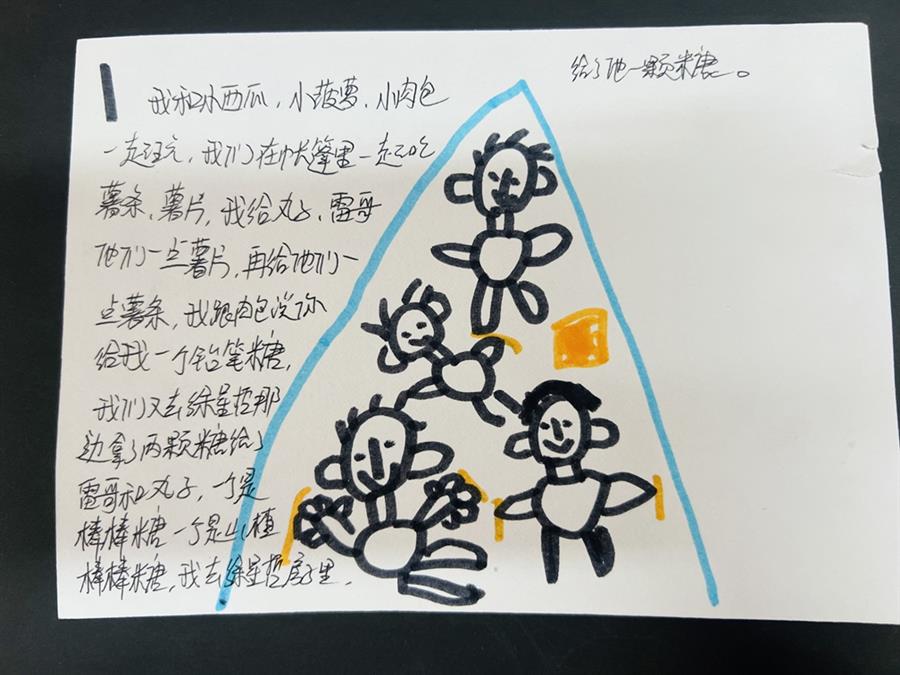 1
我和小西瓜，小菠萝、小肉包
一起玩，我们在帐篷里一起吃
薯条、薯片，我给丸子、雷哥
他们一点薯片，再给他们一
点薯条，我跟肉包说你
给我一个铅笔糖，
我们又去徐星哲那
边拿了两颗糖给了
雷哥和丸子，一个是
棒棒糖一个是山楂
棒棒糖，我去徐星哲房子里，
给了他一颗糖。